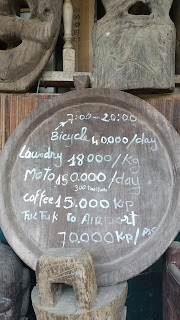 7:00-20:00
Bicycle 40.000/day
Laundry 18000/Kg
Moto 150.000/day
coffee 15.000 KP
Tuk Tuk to AIRport
70.000 KP/